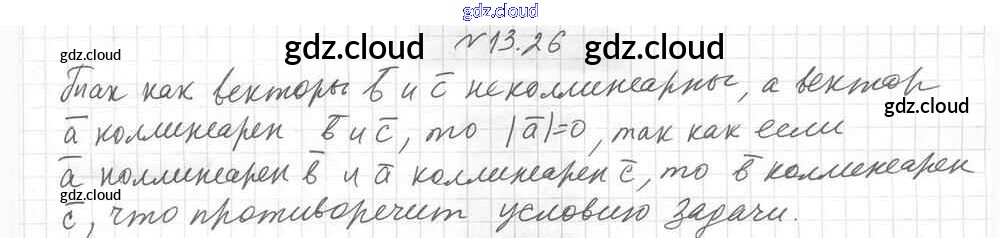 gdz.cloud
gdz.cloud gdz.cloud № 13.26 gdz.cloud
Так как векторы b̄ и c̄ неколлинеарны, а вектор
gdz.cloud
ā коллинеарен b̄ и c̄, то |ā|=0, так как если
ā коллинеарен b̄ и ā коллинеарен c̄, то b̄ коллинеарен
gdz.cloud
c̄, что противоречит условию задачи.